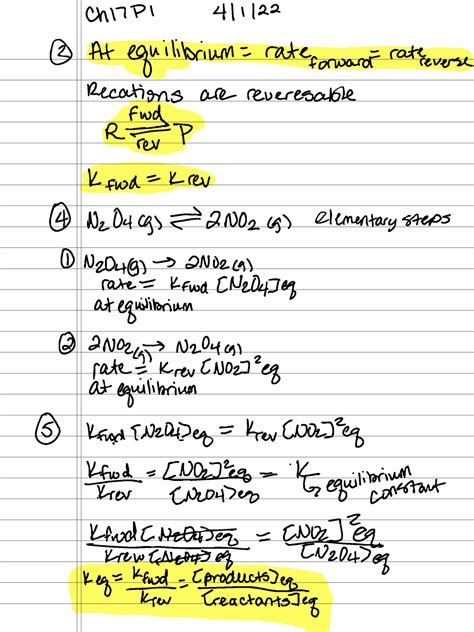 Ch17P1 4/1/22
③ At equilibrium = rate forward = rate reverse
Recations are reveresable
fwd
R ⇌ P
rev
K fwd = K rev
④ N2O4(g) ⇌ 2NO2(g) elementary steps
① N2O4(g) → 2NO2(g)
rate = Kfwd [N2O4]eq
at equilibrium
② 2NO2(g) → N2O4(g)
rate = Krev [NO2]²eq
at equilibrium
⑤ Kfwd [N2O4]eq = Krev [NO2]²eq
Kfwd/Krev = [NO2]²eq/[N2O4]eq = K
↳ equilibrium constant
Kfwd [N2O4]eq/Krev [N2O4]eq = [NO2]²eq/[N2O4]eq
Keq = Kfwd/Krev = [products]eq/[reactants]eq